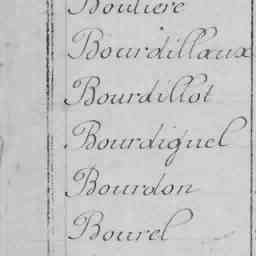 Bouliere
Bourdillaux
Bourdillot
Bourdiguel
Bourdon
Bourel